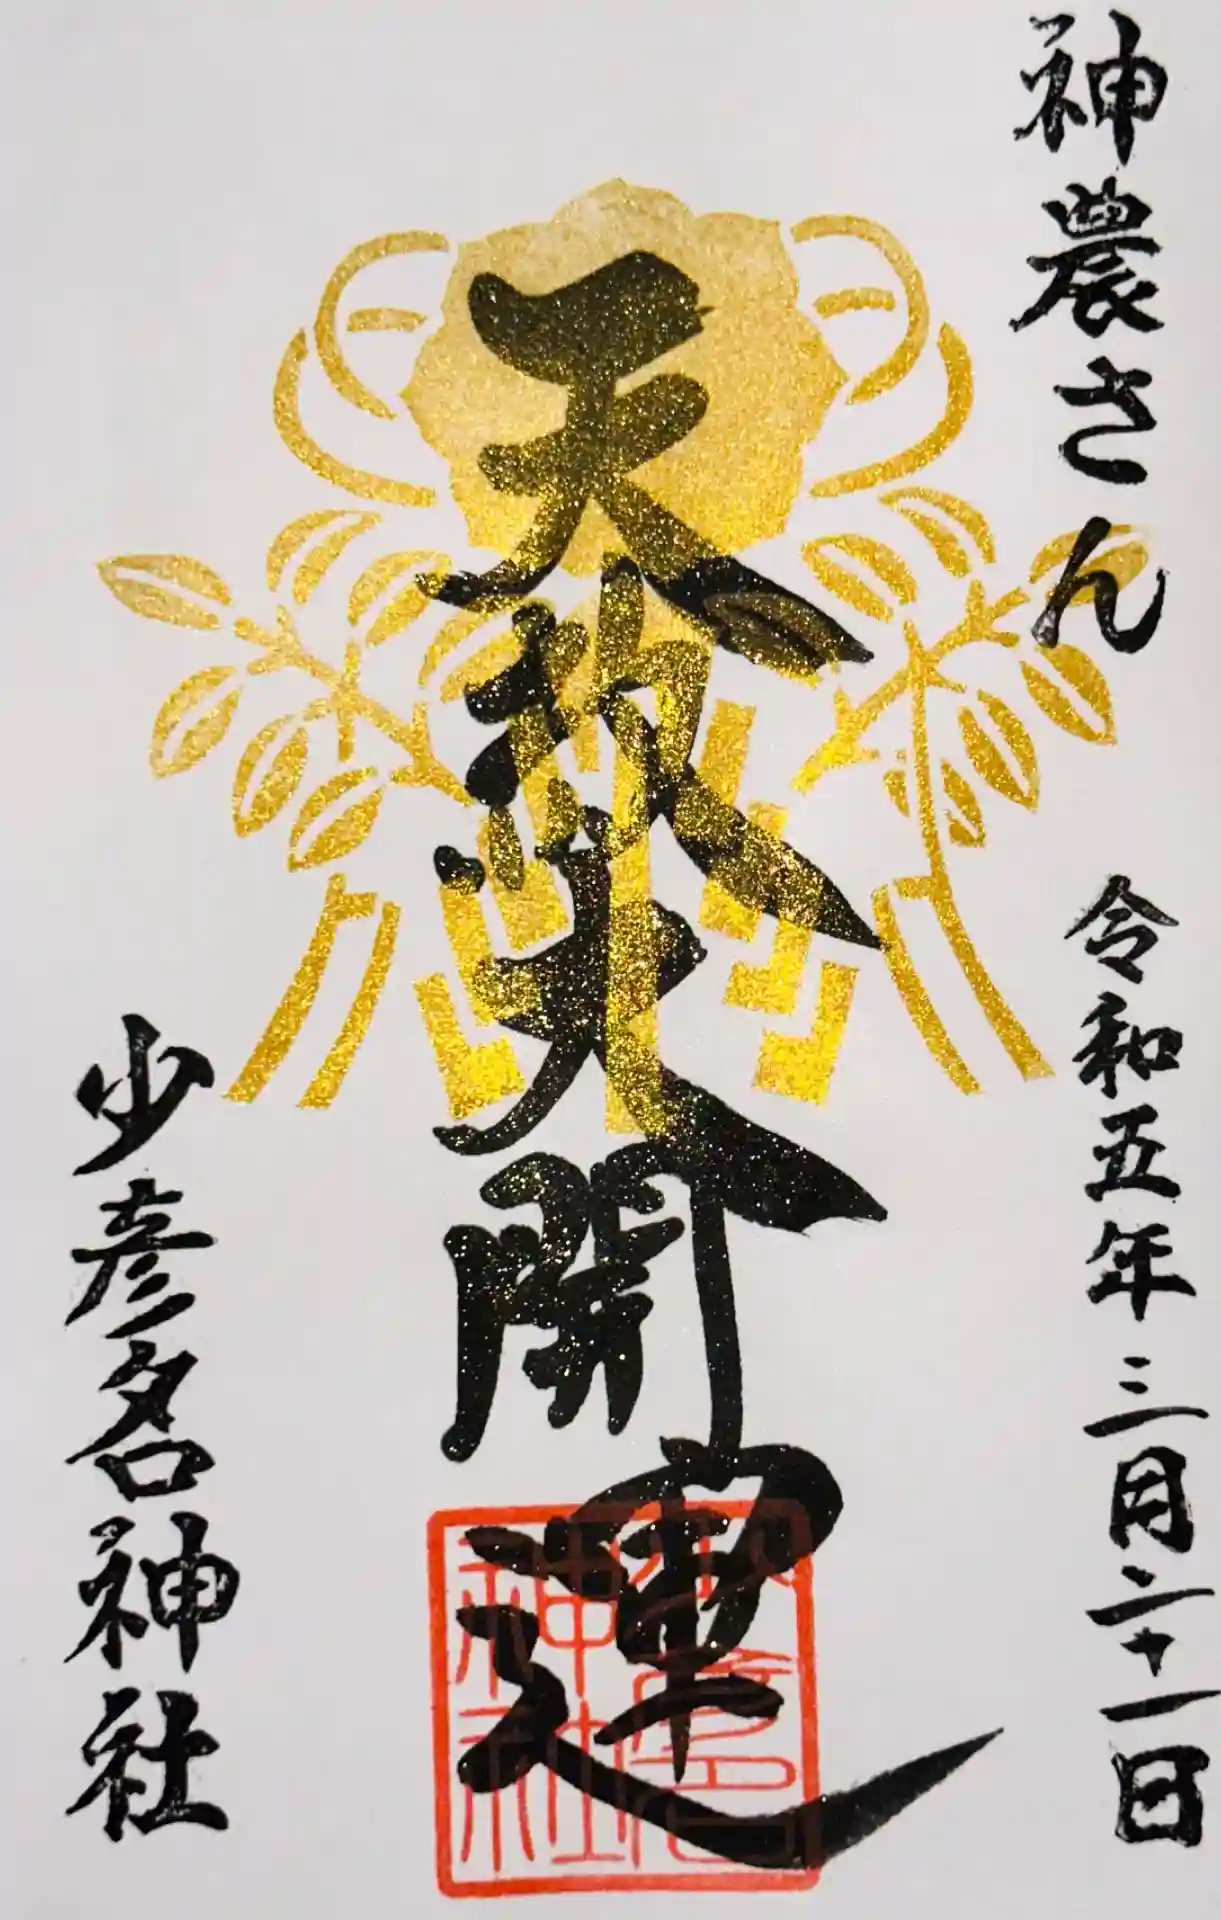 神農さん
令和五年三月二十一日
天赦大開運
少彦名神社
少彦名
神社